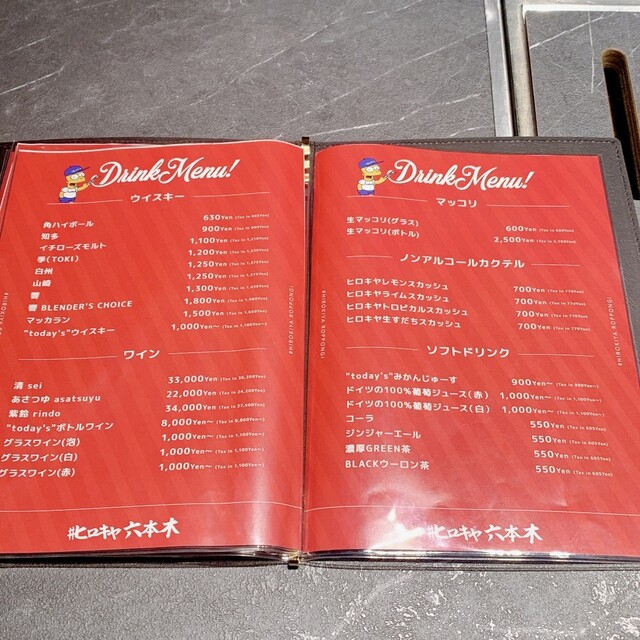 Drink Menu!
ウイスキー
角ハイボール 630Yen
知多 900Yen
イチローズモルト 1,100Yen
季(TOKI) 1,200Yen
白州 1,250Yen
山崎 1,250Yen
響 1,300Yen
響 BLENDER'S CHOICE 1,800Yen
マッカラン 1,500Yen
"today's"ウイスキー 1,000Yen〜
ワイン
清 sei 33,000Yen (Tax in 36,300Yen)
あさつゆ asatsuyu 22,000Yen (Tax in 24,200Yen)
紫鈴 rindo 34,000Yen (Tax in 37,400Yen)
"today's"ボトルワイン 8,000Yen〜 (Tax in 8,800Yen〜)
グラスワイン(泡) 1,000Yen〜 (Tax in 1,100Yen〜)
グラスワイン(白) 1,000Yen〜 (Tax in 1,100Yen〜)
グラスワイン(赤) 1,000Yen〜 (Tax in 1,100Yen〜)
#ヒロキヤ 六本木
#HIROKIYA ROPPONGI
Drink Menu!
マッコリ
生マッコリ(グラス) 600Yen (Tax in 660Yen)
生マッコリ(ボトル) 2,500Yen (Tax in 2,750Yen)
ノンアルコールカクテル
ヒロキヤレモンスカッシュ 700Yen (Tax in 770Yen)
ヒロキヤライムスカッシュ 700Yen (Tax in 770Yen)
ヒロキヤトロピカルスカッシュ 700Yen (Tax in 770Yen)
ヒロキヤ生すだちスカッシュ 700Yen (Tax in 770Yen)
ソフトドリンク
"today's"みかんじゅーす 900Yen〜 (Tax in 990Yen〜)
ドイツの100%葡萄ジュース(赤) 1,000Yen〜 (Tax in 1,100Yen〜)
ドイツの100%葡萄ジュース(白) 1,000Yen〜 (Tax in 1,100Yen〜)
コーラ 550Yen (Tax in 605Yen)
ジンジャーエール 550Yen (Tax in 605Yen)
濃厚GREEN茶 550Yen (Tax in 605Yen)
BLACKウーロン茶 550Yen (Tax in 605Yen)
#ヒロキヤ 六本木
#HIROKIYA ROPPONGI
#HIROKIYA ROPPONGI